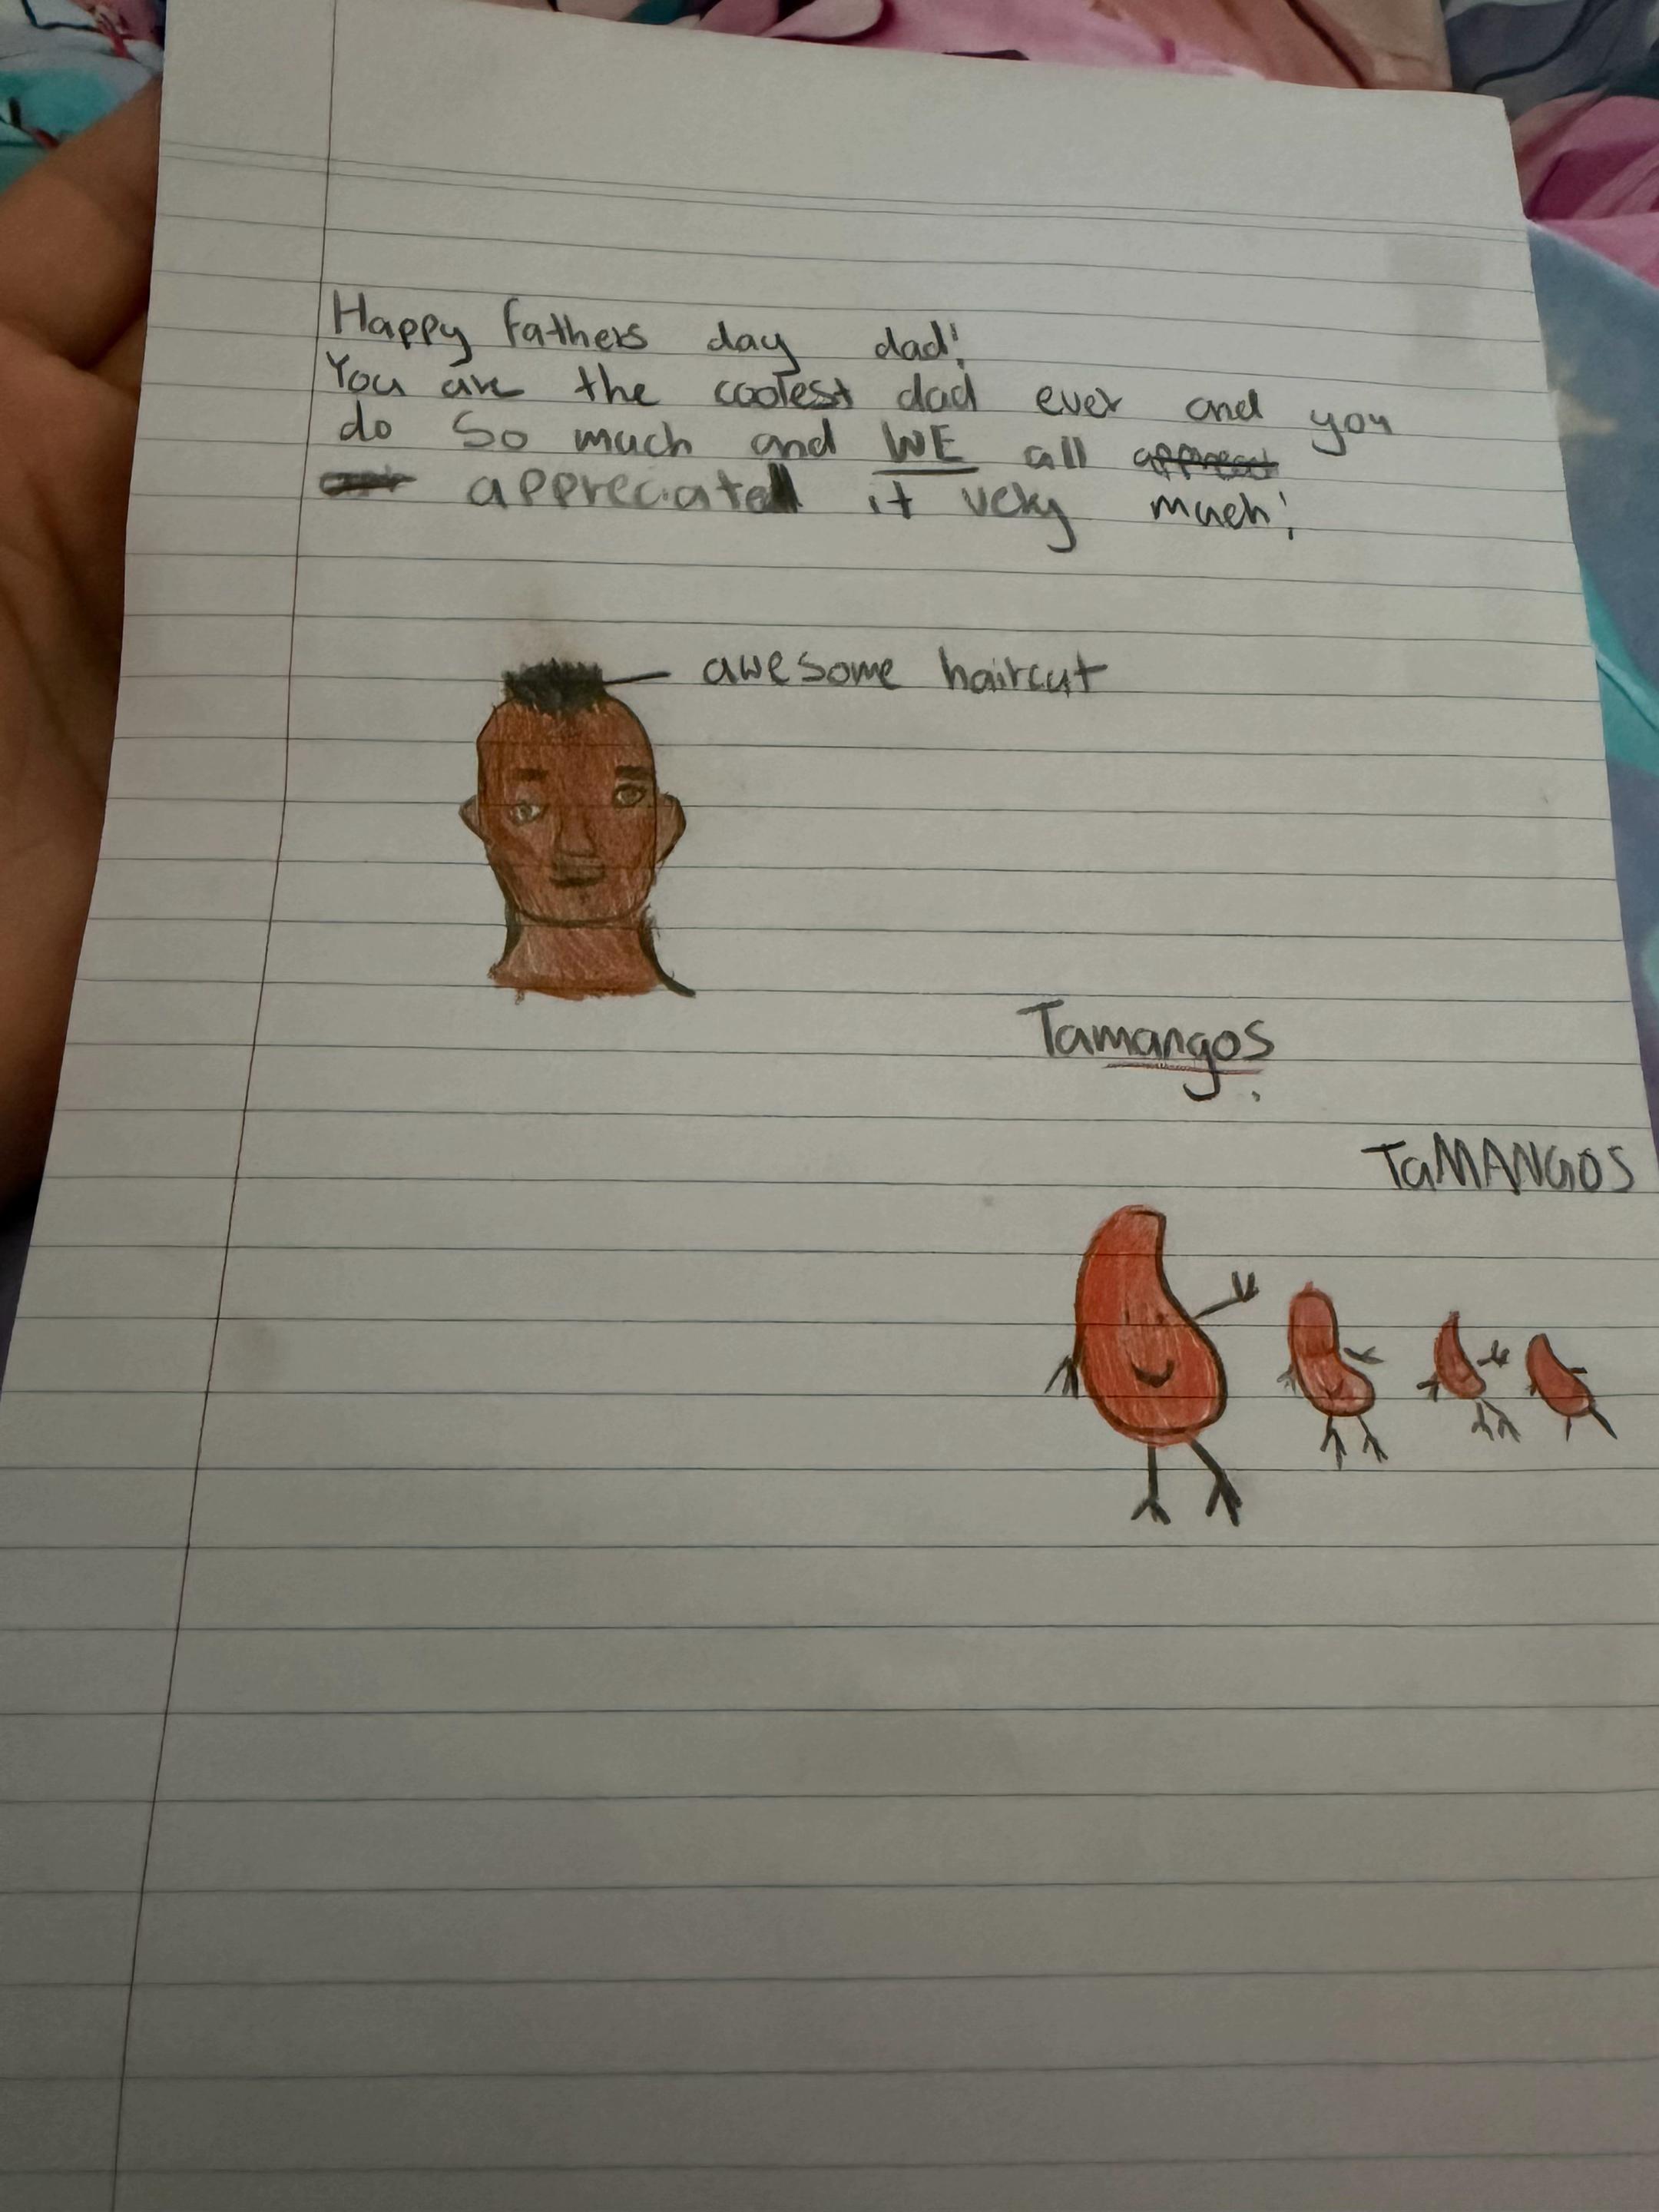 Happy fathers day dad!
You are the coolest dad ever and you
do so much and WE all appreat
appreciate it very much!
awesome haircut
Tamangos
TaMANGOS